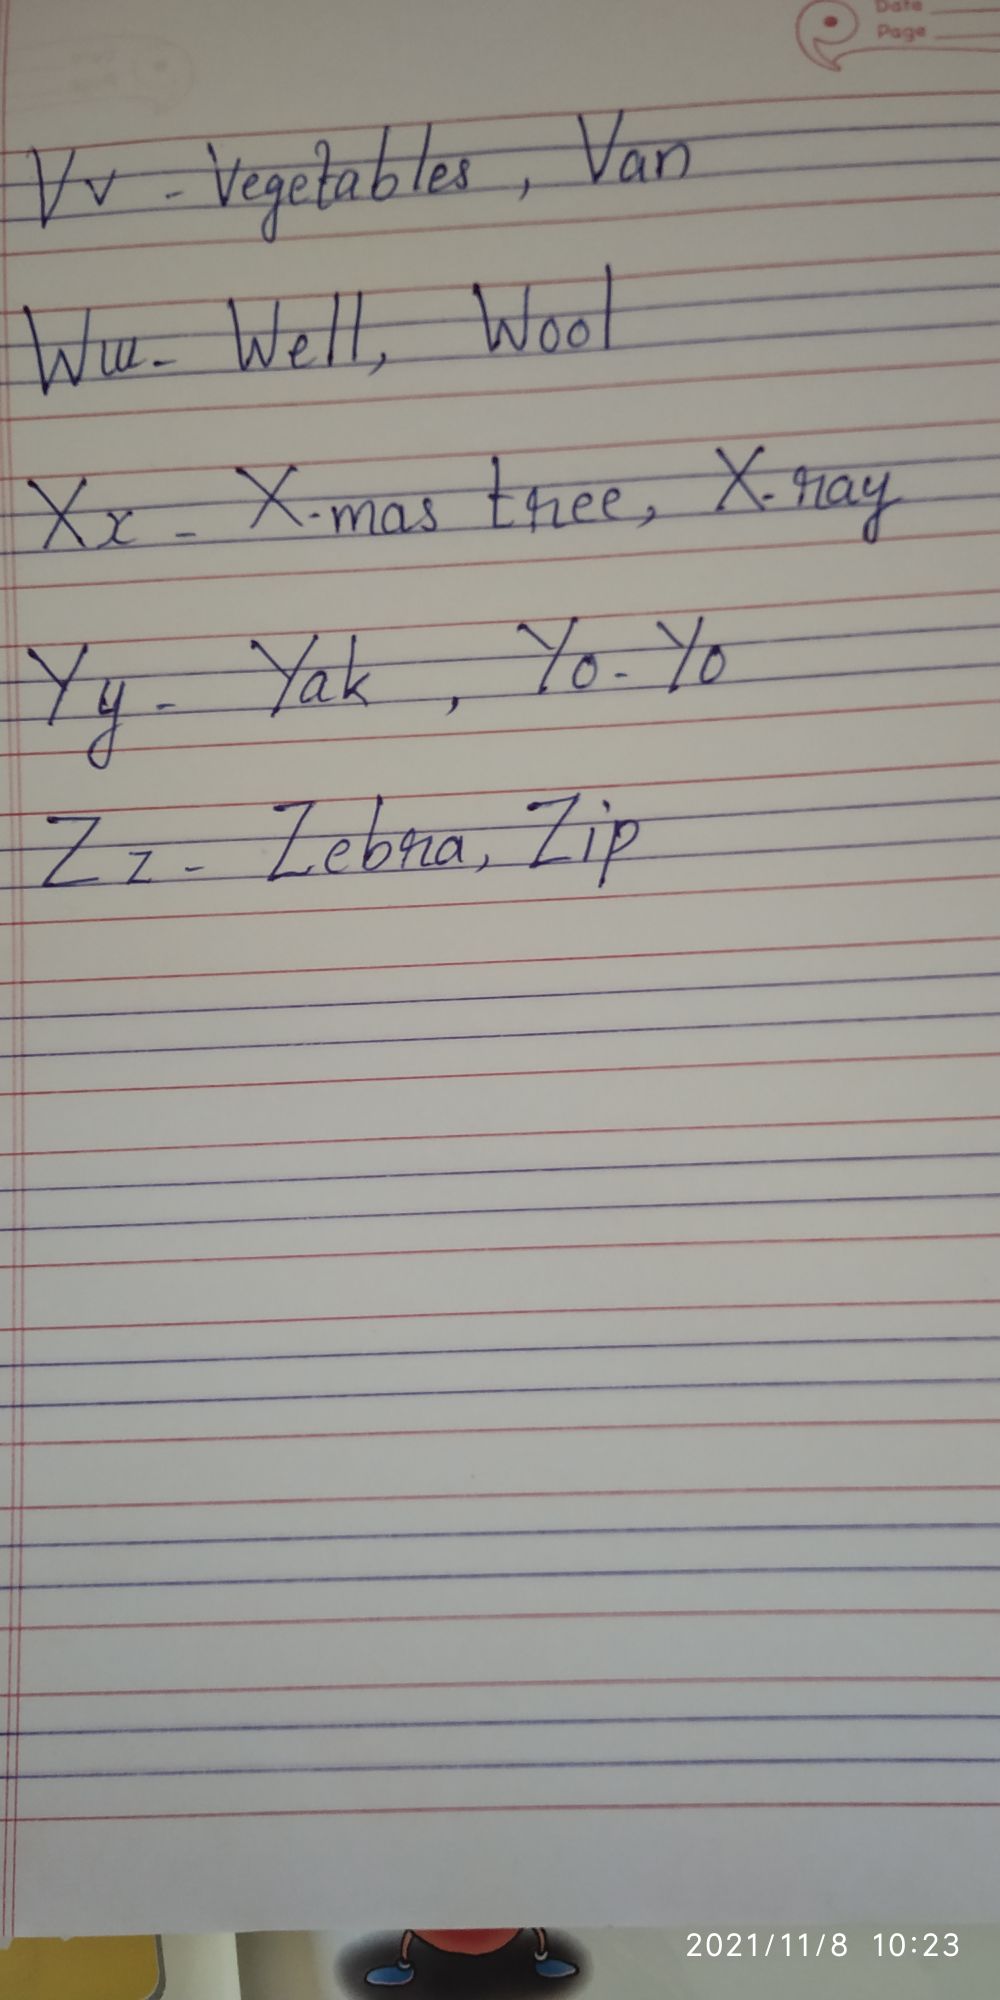 Date
Page
Vv - Vegetables, Van
Ww - Well, Wool
Xx - X-mas tree, X-ray
Yy - Yak, Yo-Yo
Zz - Zebra, Zip
2021/11/8 10:23